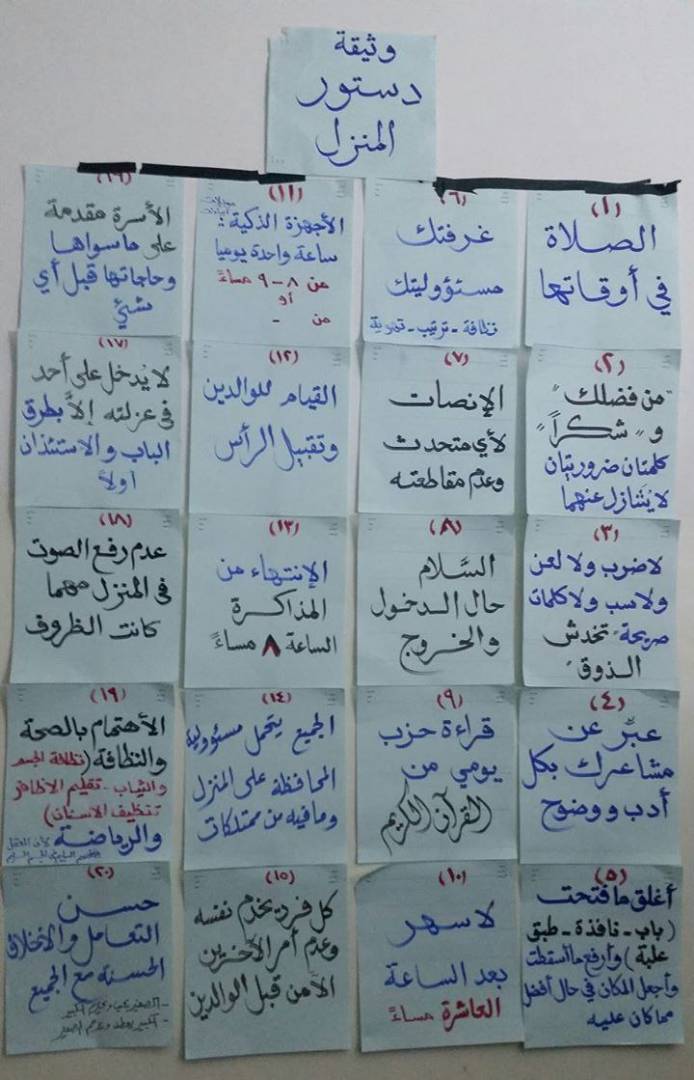 وثيقة
دستور
المنزل
(١)
الصلاة
في أوقاتها
(٢)
"من فضلك"
و "شكراً"
كلمتان ضروريتان
لا يتنازل عنهما
(٣)
لا ضرب ولا لعن
ولا سب ولا كلمات
صريحة "تخدش
الذوق"
(٤)
عبّر عن
مشاعرك بكل
أدب ووضوح
(٥)
أغلق ما فتحت
(باب - نافذة - طبق
علبة) وأرفع ما أسقطت
وأجعل المكان في حال أفضل
مما كان عليه
(٦)
غرفتك
مسئووليتك
نظافة - ترتيب - تهوية
(٧)
الإنصات
لأي متحدث
وعدم مقاطعته
(٨)
السَّلام
حال الدخول
والخروج
(٩)
قراءة حزب
يومي من
القرآن الكريم
(١٠)
لا سهر
بعد الساعة
العاشرة مساءً
(١١)
الأجهزة الذكية:
ساعة واحدة يوميا
من ٨ - ٩ مساءً
أو
من -
(١٢)
القيام للوالدين
وتقبيل الرأس
(١٣)
الإنتهاء من
المذاكرة
الساعة ٨ مساءً
(١٤)
الجميع يتحمل مسئوولية
المحافظة على المنزل
وما فيه من ممتلكات
(١٥)
كل فرد يخدم نفسه
وعدم أمر الآخرين
الأمن قبل الوالدين
(١٦)
الأسرة مقدمة
على ما سواها
وحاجاتها قبل أي
شيئ
(١٧)
لا يُدخل على أحد
في عزلته إلاَّ بطرق
الباب والاستئذان
أولاً
(١٨)
عدم رفع الصوت
في المنزل مهما
كانت الظروف
(١٩)
الأهتمام بالصحة
والنظافة (نظافة الجسم
والثياب - تقليم الأظافر
تنظيف الأسنان)
والرياضة لأن العقل
السليم في الجسم السليم
(٢٠)
حسن
التعامل والأخلاق
الحسنة مع الجميع
- الصغير يحب ويحترم الكبير
- الكبير يعطف ويرحم الصغير